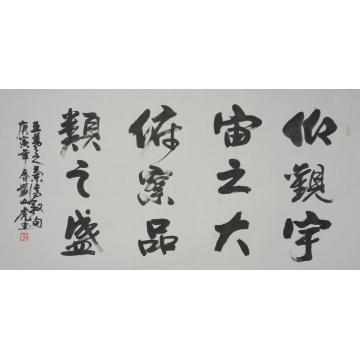 仰觀宇
宙之大
俯察品
類之盛
王羲之蘭亭敘句
庚寅年春山書